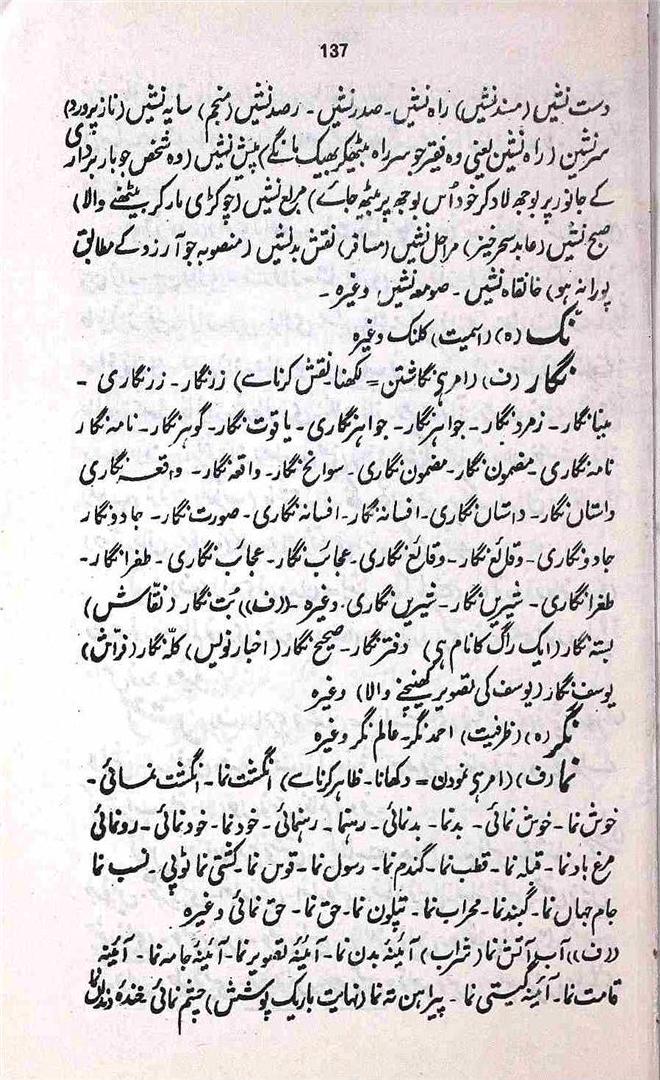 137
دست نشیں (مسند نشیں) راہ نشیں۔ صدر نشیں۔ رصد نشیں (منجم) سایہ نشیں (ناز پرورد)
سر نشین (راہ نشین یعنی وہ فقیر جو سر راہ بیٹھکر بھیک مانگے) پیش نشیں (وہ شخص جو بار برداری
کے جانور پر بوجھ لاد کر خود اُس بوجھ پر بیٹھ جائے) مربع نشیں (چوکڑی مار کر بیٹھنے والا)
صبح نشیں (عابد سحر خیز) مراحل نشیں (مسافر) نقش بد نشیں (منصوبہ جو آرزو کے مطابق
پورا نہ ہو) خانقاہ نشیں۔ صومعہ نشیں وغیرہ۔
نک (ہ) (اسمیت) کلنک وغیرہ
نگار (ف) (امر ہی نگاشتن = لکھنا نقش کرنا سے) زرنگار۔ زرنگاری۔
مینا نگار۔ زمرد نگار۔ جواہر نگار۔ جواہر نگاری۔ یاقوت نگار۔ گوہر نگار۔ نامہ نگار
نامہ نگاری۔ مضمون نگار۔ مضمون نگاری۔ سوانح نگار۔ واقعہ نگار۔ واقعہ نگاری
داستاں نگار۔ داستاں نگاری۔ افسانہ نگار۔ افسانہ نگاری۔ صورت نگار۔ جادو نگار
جادو نگاری۔ وقائع نگار۔ وقائع نگاری۔ عجائب نگار۔ عجائب نگاری۔ طغرا نگار۔
طغرا نگاری۔ شیریں نگار۔ شیریں نگاری۔ وغیرہ۔ ((ف)) بُت نگار (نقّاش)
بستہ نگار (ایک راگ کا نام ہی) دفتر نگار۔ صحیح نگار (اخبار نویس) کلّہ نگار (فرّاش)
یوسف نگار (یوسف کی تصویر کھینچنے والا) وغیرہ
نگر (ہ) (ظرفیت) احمد نگر۔ عالم نگر وغیرہ
نما (ف) (امر ہی نمودن = دکھانا۔ ظاہر کرنا سے) انگشت نما۔ انگشت نمائی۔
خوش نما۔ خوش نمائی۔ بدنما۔ بدنمائی۔ رہنما۔ رہنمائی۔ خود نما۔ خود نمائی۔ رونمائی
مرغ باد نما۔ قبلہ نما۔ قطب نما۔ گندم نما۔ رسول نما۔ قوس نما۔ کشتی نما ٹوپی۔ نسب نما
جام جہاں نما۔ گنبد نما۔ محراب نما۔ پتلون نما۔ حق نما۔ حق نمائی وغیرہ
((ف)) آب آتش نما (شراب) آئینۂ بدن نما۔ آئینۂ تصویر نما۔ آئینۂ جامہ نما۔ آئینۂ
قامت نما۔ آئینہ گیتی نما۔ پیراہن تہ نما (نہایت باریک پوشش) چشم نمائی۔ خندۂ دنداں نما